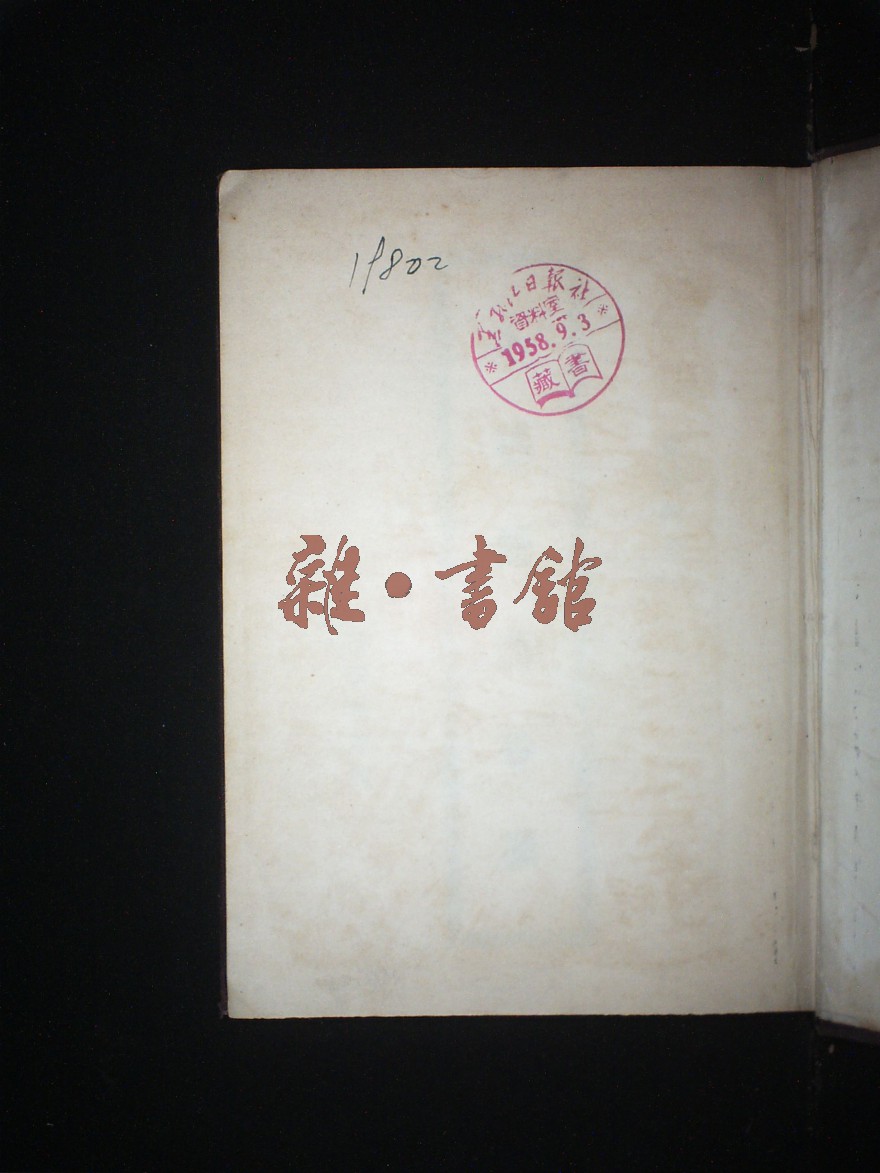 19802
日報社
資料室
1958.9.3
藏書
雜·書館